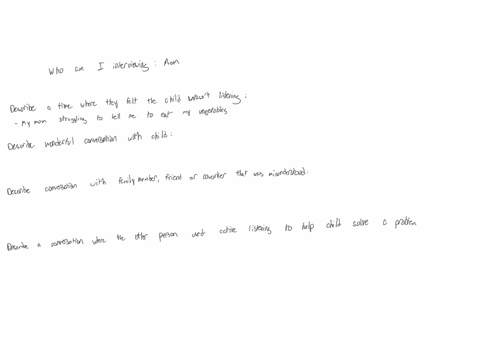 Who am I interviewing: Mom
Describe a time where they felt the child wasn't listening:
- My mom struggling to tell me to eat my vegetables
Describe wonderful conversation with child:
Describe conversation with family member, friend or coworker that was misunderstood:
Describe a conversation where the other person used active listening to help child solve a problem